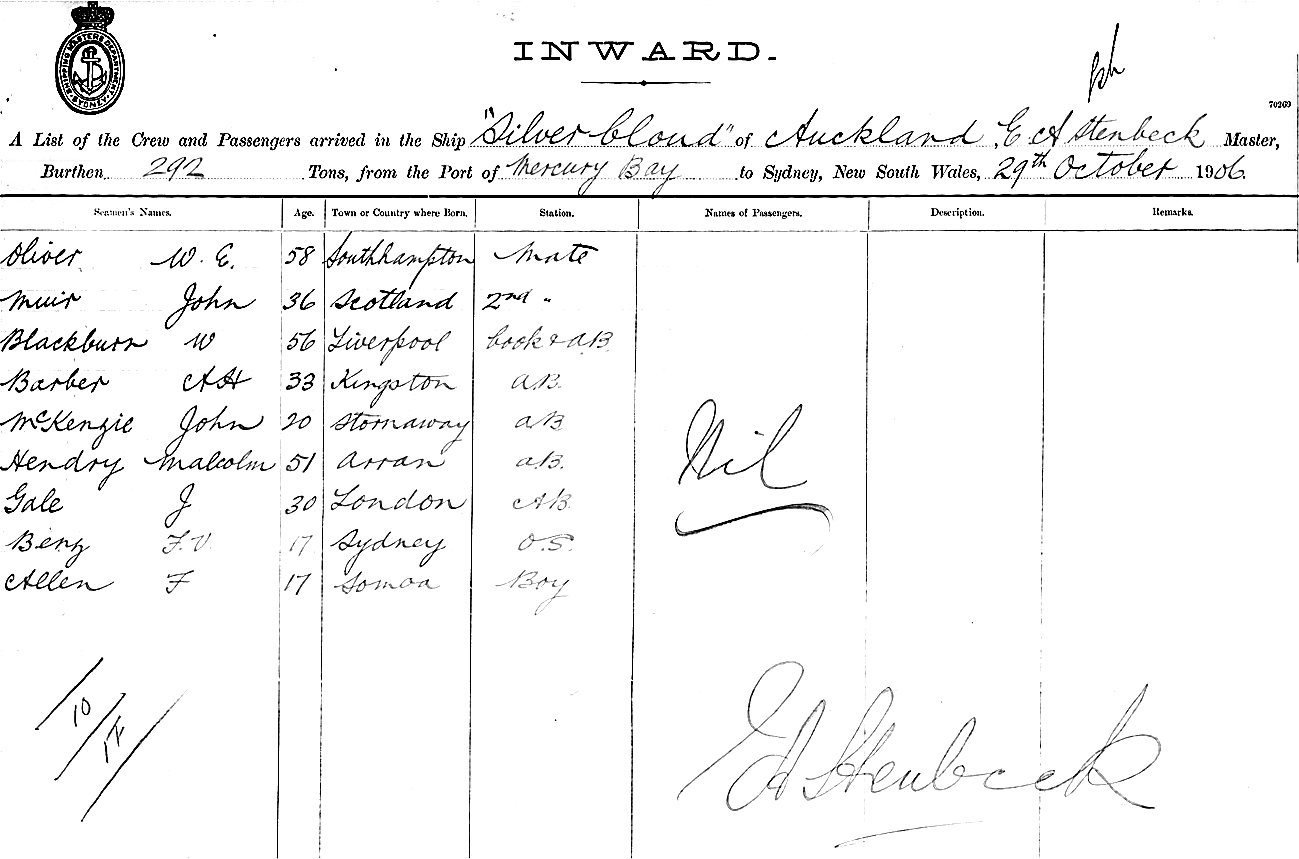 SHIPPING MASTERS DEPARTMENT SYDNEY
INWARD.
70269
A List of the Crew and Passengers arrived in the Ship "Silver Cloud" of Auckland, E A Stenbeck Master,
Burthen 292 Tons, from the Port of Mercury Bay to Sydney, New South Wales, 29th October 1906.
Seamen's Names. Age. Town or Country where Born. Station. Names of Passengers. Description. Remarks.
Oliver W. E. 58 Southhampton Mate
Muir John 36 Scotland 2nd "
Blackburn W 56 Liverpool Cook & AB
Barber A H 33 Kingston A.B.
McKenzie John 20 Stornaway AB
Hendry Malcolm 51 Arran A.B.
Nil
Gale J 30 London AB
Beng F. V. 17 Sydney O.S.
Allen F 17 Somoa Boy
10
E A Stenbeck